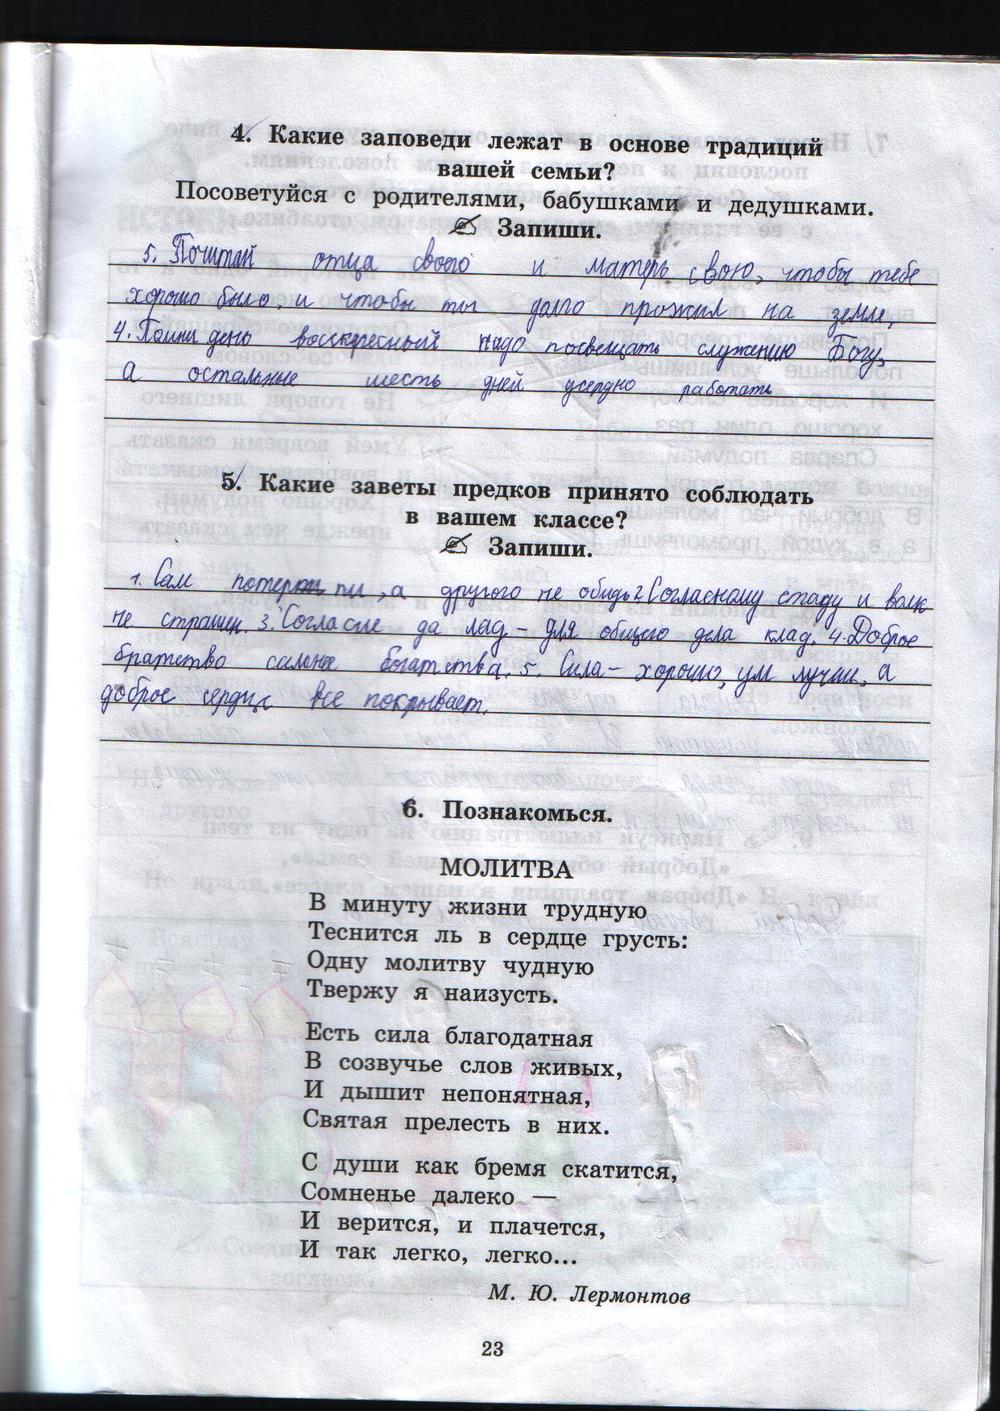 4. Какие заповеди лежат в основе традиций
вашей семьи?
Посоветуйся с родителями, бабушками и дедушками.
Запиши.
5. Почитай отца своего и матерь свою, чтобы тебе
хорошо было, и чтобы ты долго прожил на земли,
4. Помни день воскресный надо посвещать служению Богу,
а остальные шесть дней усердно работать
5. Какие заветы предков принято соблюдать
в вашем классе?
Запиши.
1. Сам потерпи, а другого не обидь 2 Согласному стаду и волк
не страшен. 3. Согласие да лад - для общего дела клад. 4. Доброе
братство сильнее богатства. 5. Сила - хорошо, ум лучше, а
доброе сердце все покрывает.
6. Познакомься.
МОЛИТВА
В минуту жизни трудную
Теснится ль в сердце грусть:
Одну молитву чудную
Твержу я наизусть.
Есть сила благодатная
В созвучье слов живых,
И дышит непонятная,
Святая прелесть в них.
С души как бремя скатится,
Сомненье далеко —
И верится, и плачется,
И так легко, легко...
М. Ю. Лермонтов
23